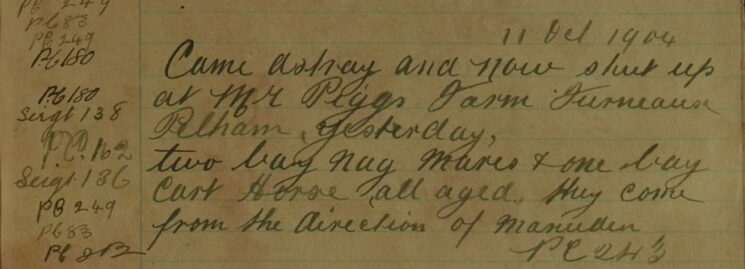 PC 249
PC 83
PC 249
PC 180
PC 180
Sergt 138
P.C. 162
Sergt 136
PC 249
PC 83
PC
11 Oct 1904
Came astray and now shut up
at Mr Piggs Farm Furneaux
Pelham, yesterday,
two bay nag mares & one bay
Cart Horse, all aged, they come
from the direction of Manuden
PC 243